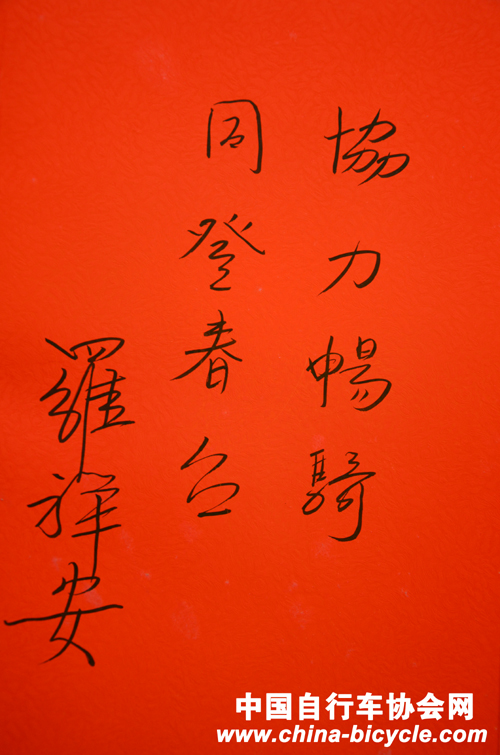 協力暢騎
同登春台
羅祥安
中国自行车协会网
www.china-bicycle.com